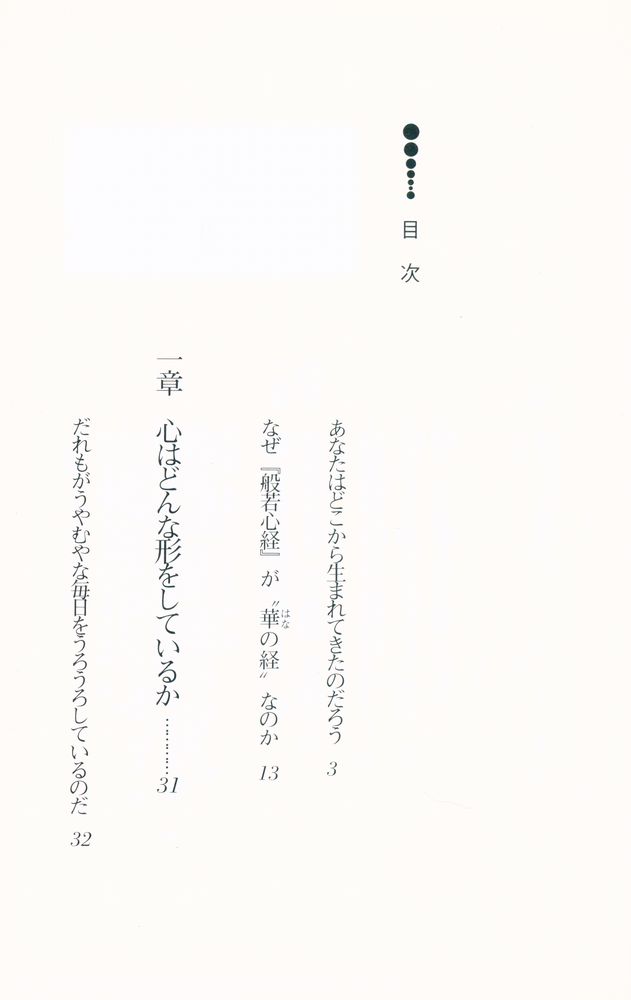 目次
あなたはどこから生まれてきたのだろう 3
なぜ『般若心経』が〝華の経〟なのか 13
はな
一章 心はどんな形をしているか …………31
だれもがうやむやな毎日をうろうろしているのだ 32